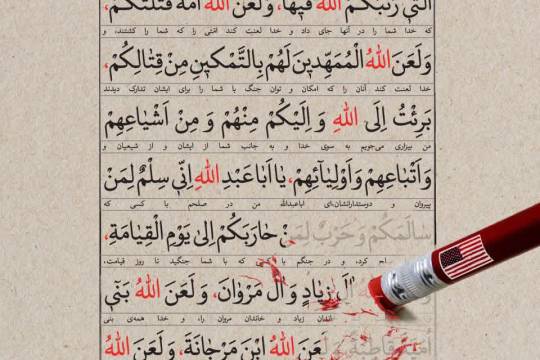 الَّتي رَتَّبَكُمُ اللهُ فيها، وَلَعَنَ اللهُ اُمَّةً قَتَلَتْكُمْ،
که خدا شما را در آنها جای داد و خدا لعنت کند امّتی را که شما را کشتند، و
وَلَعَنَ اللهُ الْمُمَهِّدينَ لَهُمْ بِالتَّمْكينِ مِنْ قِتالِكُمْ،
خدا لعنت کند آنان را که امکان و توان جنگ با شما را برای ایشان تدارک دیدند
بَرِئْتُ اِلَى اللهِ وَ اِلَيْكُمْ مِنْهُمْ وَ مِنْ اَشْياعِهِمْ
من بیزاری می‌جویم به سوی خدا و به جانب شما از ایشان و از شیعیان و
وَ اَتْباعِهِمْ وَ اَوْلِيآئِهِمْ، يا اَباعَبْدِ اللهِ اِنّي سِلْمٌ لِمَنْ
پیروان و دوستدارانشان،ای اباعبدالله من در صلحم با کسی که
سالَمَكُمْ وَ حَرْبٌ لِمَنْ حارَبَكُمْ اِلى يَوْمِ الْقِيامَةِ،
کرد، و در جنگم با که با شما جنگید تا روز قیامت،
اللهُ آلَ زِيادٍ وَ آلَ مَرْوانَ، وَ لَعَنَ اللهُ بَني
خاندان زیاد و خاندان مروان را، و خدا همه‌ی بنی
لَعَنَ اللهُ ابْنَ مَرْجانَةَ، وَ لَعَنَ اللهُ